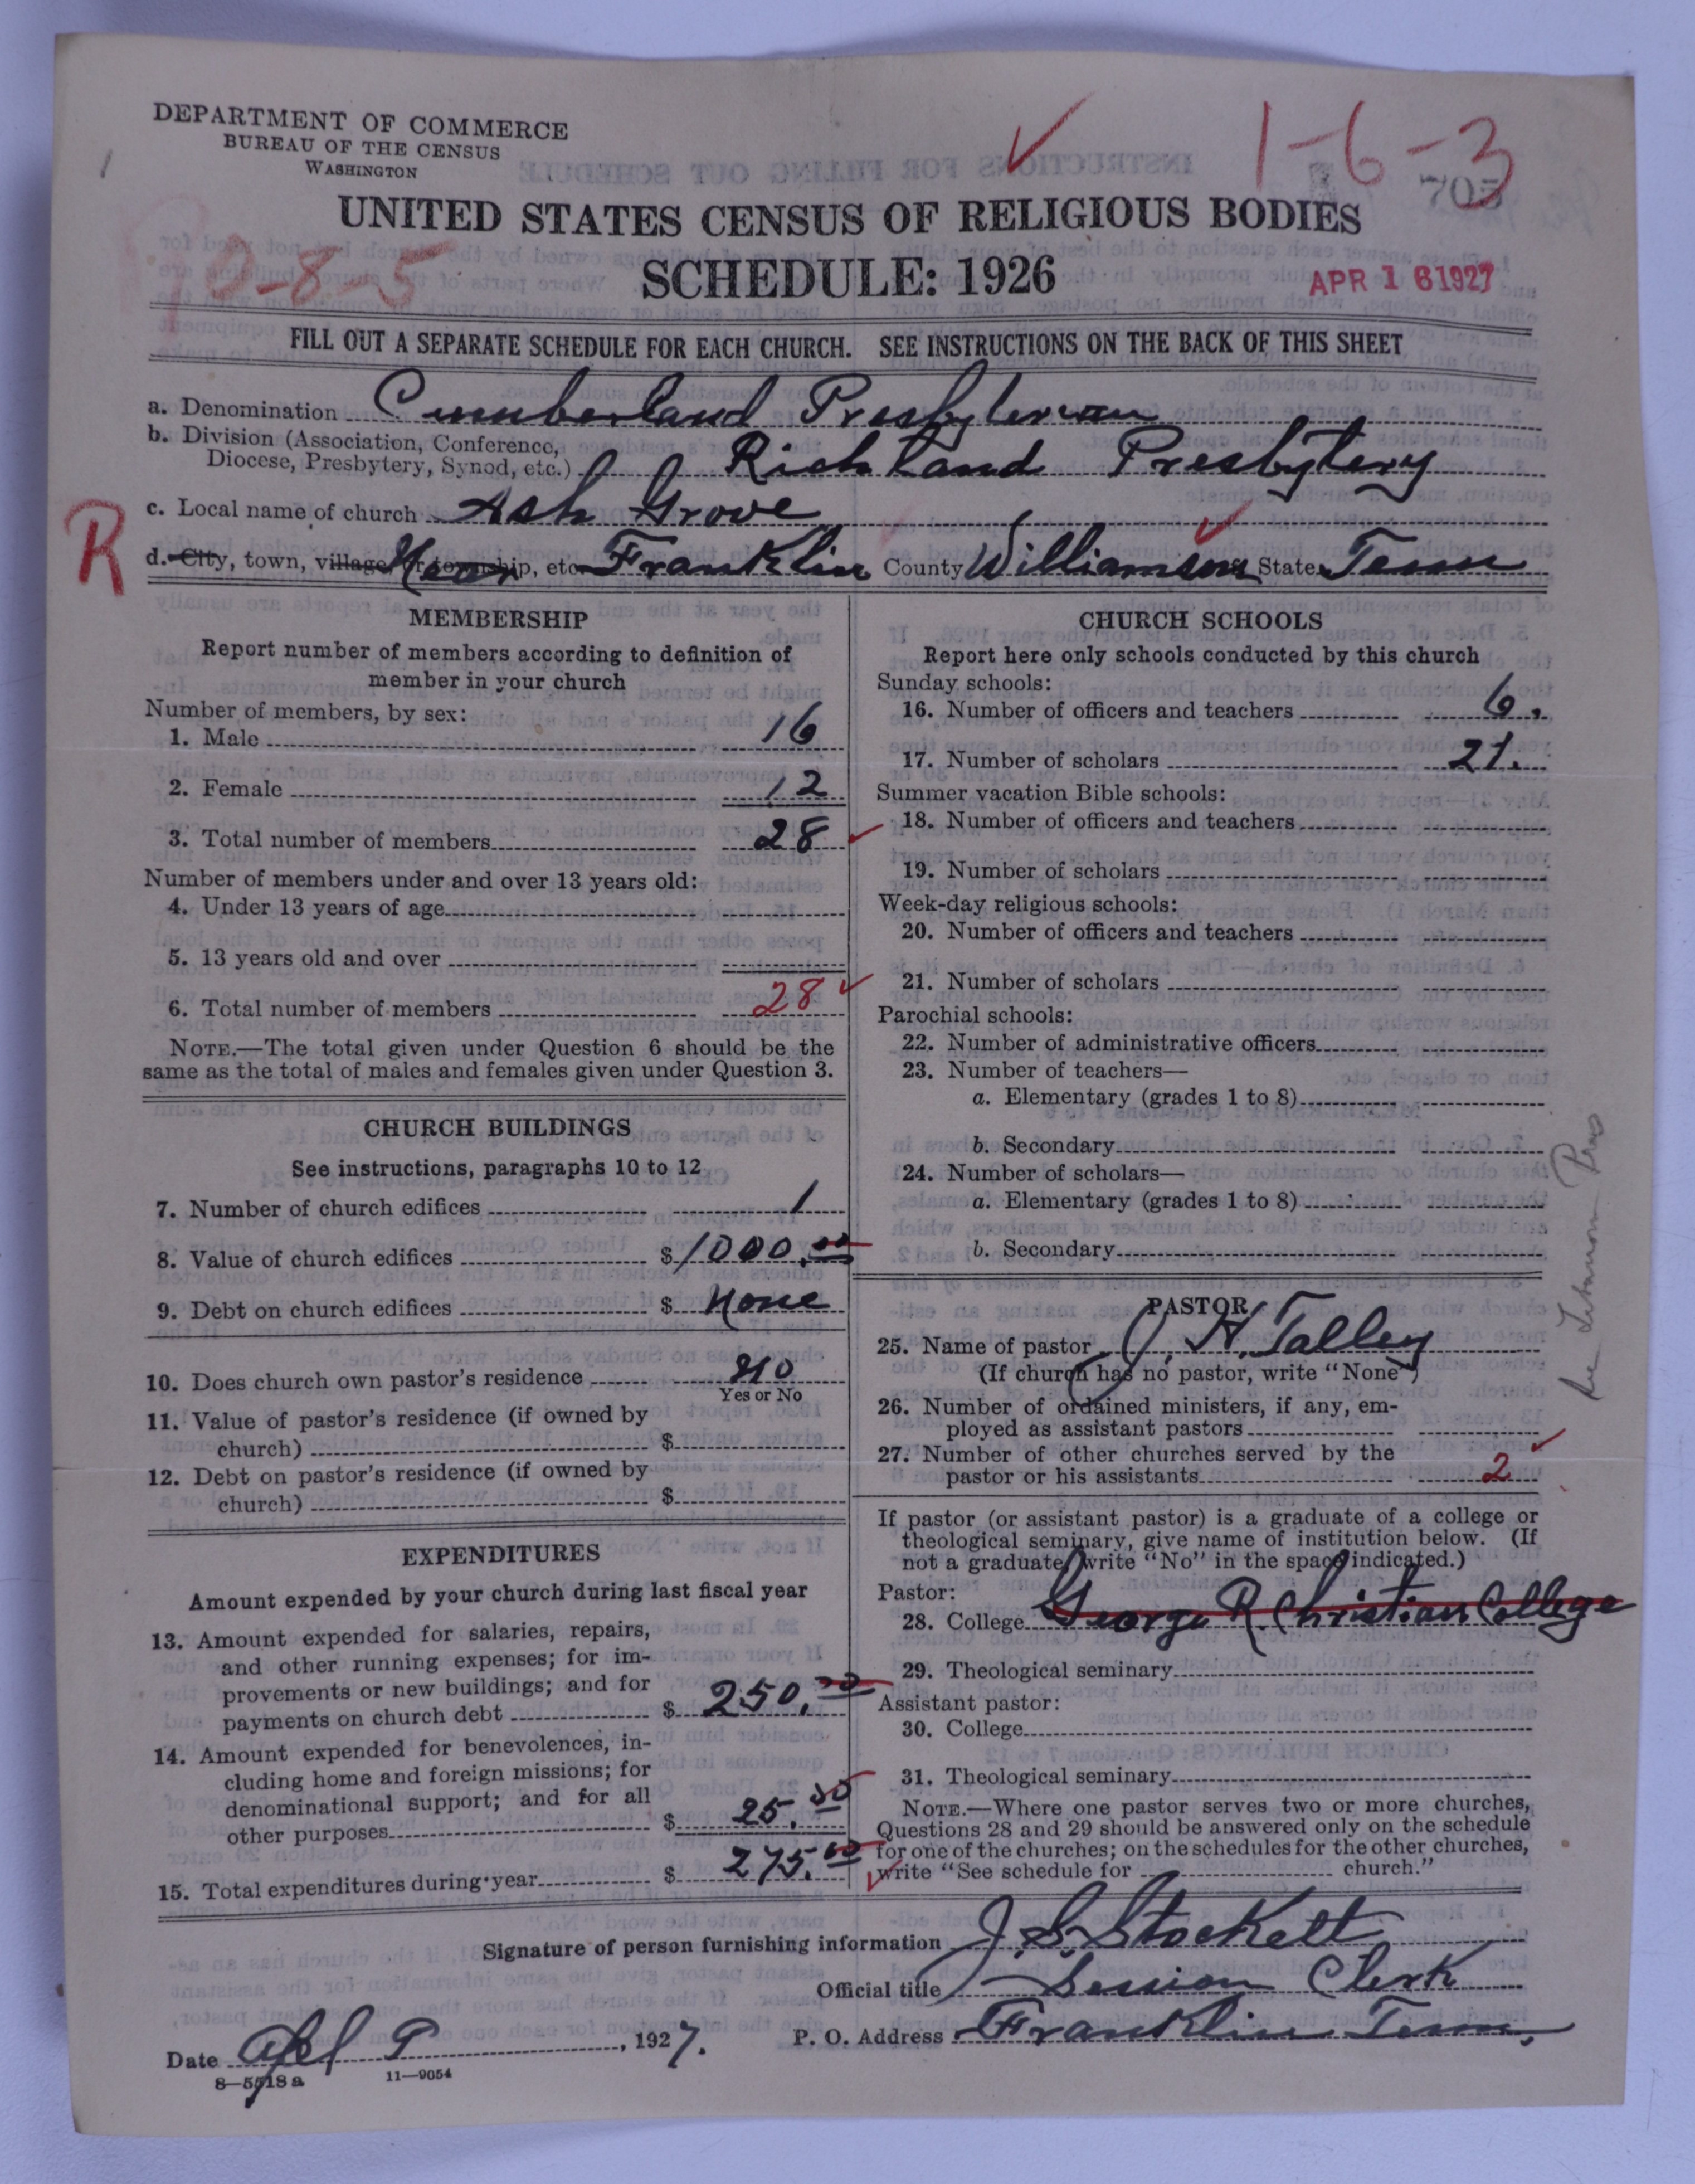 DEPARTMENT OF COMMERCE
BUREAU OF THE CENSUS
WASHINGTON
1-6-3
705
UNITED STATES CENSUS OF RELIGIOUS BODIES
SCHEDULE: 1926
0-8-5
APR 16 1927
FILL OUT A SEPARATE SCHEDULE FOR EACH CHURCH. SEE INSTRUCTIONS ON THE BACK OF THIS SHEET
a. Denomination Cumberland Presbyterian
b. Division (Association, Conference,
Diocese, Presbytery, Synod, etc.) Richland Presbytery
c. Local name of church Ash Grove
R
d. City, town, village, or township, etc. Near Franklin County Williamson State Tenn
MEMBERSHIP
Report number of members according to definition of
member in your church
Number of members, by sex:
1. Male 16
2. Female 12
3. Total number of members 28
Number of members under and over 13 years old:
4. Under 13 years of age
5. 13 years old and over
6. Total number of members 28
NOTE.—The total given under Question 6 should be the
same as the total of males and females given under Question 3.
CHURCH BUILDINGS
See instructions, paragraphs 10 to 12
7. Number of church edifices 1
8. Value of church edifices $1000.00
9. Debt on church edifices $ None
10. Does church own pastor's residence no
Yes or No
11. Value of pastor's residence (if owned by
church) $
12. Debt on pastor's residence (if owned by
church) $
EXPENDITURES
Amount expended by your church during last fiscal year
13. Amount expended for salaries, repairs,
and other running expenses; for im-
provements or new buildings; and for
payments on church debt $ 250.00
14. Amount expended for benevolences, in-
cluding home and foreign missions; for
denominational support; and for all
other purposes $ 25.00
15. Total expenditures during year $ 275.00
CHURCH SCHOOLS
Report here only schools conducted by this church
Sunday schools:
16. Number of officers and teachers 6.
17. Number of scholars 21.
Summer vacation Bible schools:
18. Number of officers and teachers
19. Number of scholars
Week-day religious schools:
20. Number of officers and teachers
21. Number of scholars
Parochial schools:
22. Number of administrative officers
23. Number of teachers—
a. Elementary (grades 1 to 8)
b. Secondary
24. Number of scholars—
a. Elementary (grades 1 to 8)
b. Secondary
PASTOR
25. Name of pastor J. H. Talley
(If church has no pastor, write "None")
26. Number of ordained ministers, if any, em-
ployed as assistant pastors
27. Number of other churches served by the
pastor or his assistants 2
If pastor (or assistant pastor) is a graduate of a college or
theological seminary, give name of institution below. (If
not a graduate, write "No" in the space indicated.)
Pastor:
28. College George R. Christian College
29. Theological seminary
Assistant pastor:
30. College
31. Theological seminary
NOTE.—Where one pastor serves two or more churches,
Questions 28 and 29 should be answered only on the schedule
for one of the churches; on the schedules for the other churches,
write "See schedule for church."
Lebanon Pres
Signature of person furnishing information J. S. Stockett
Official title Session Clerk
Date Apl 9, 1927.
P. O. Address Franklin Tenn.
8—5518 a
11—9054